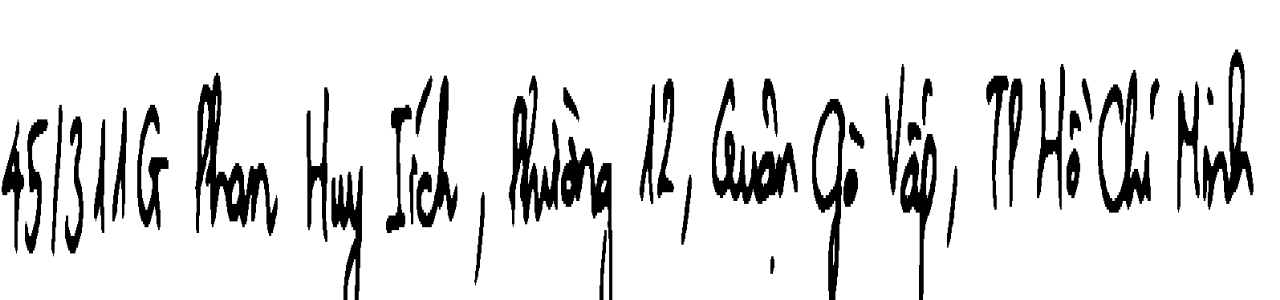 45/311G Phan Huy Ích, Phường 12, Quận Gò Vấp, TP Hồ Chí Minh